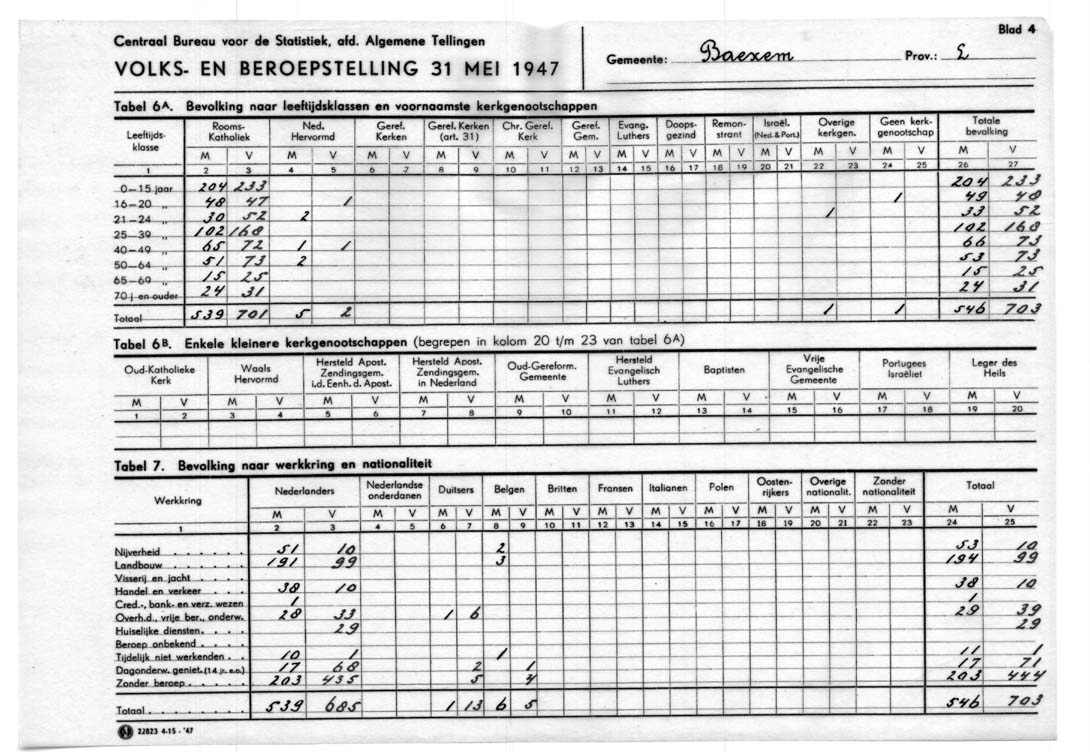 Blad 4
Centraal Bureau voor de Statistiek, afd. Algemene Tellingen
VOLKS- EN BEROEPSTELLING 31 MEI 1947
Gemeente: Baexem Prov.: L
Tabel 6A. Bevolking naar leeftijdsklassen en voornaamste kerkgenootschappen
Leeftijds-klasse Rooms-Katholiek Ned. Hervormd Geref. Kerken Geref. Kerken (art. 31) Chr. Geref. Kerk Geref. Gem. Evang. Luthers Doops-gezind Remon-strant Israël. (Ned. & Port.) Overige kerkgen. Geen kerk-genootschap Totale bevolking
M V M V M V M V M V M V M V M V M V M V M V M V M V
1 2 3 4 5 6 7 8 9 10 11 12 13 14 15 16 17 18 19 20 21 22 23 24 25 26 27
0—15 jaar 204 233 204 233
16—20 „ 48 47 1 1 49 48
21—24 „ 30 52 2 1 33 52
25—39 „ 102 168 102 168
40—49 „ 65 72 1 1 66 73
50—64 „ 51 73 2 53 73
65—69 „ 15 25 15 25
70 j en ouder 24 31 24 31
Totaal 539 701 5 2 1 1 546 703
Tabel 6B. Enkele kleinere kerkgenootschappen (begrepen in kolom 20 t/m 23 van tabel 6A)
Oud-Katholieke Kerk Waals Hervormd Hersteld Apost. Zendingsgem. i.d. Eenh. d. Apost. Hersteld Apost. Zendingsgem. in Nederland Oud-Gereform. Gemeente Hersteld Evangelisch Luthers Baptisten Vrije Evangelische Gemeente Portugees Israëliet Leger des Heils
M V M V M V M V M V M V M V M V M V M V
1 2 3 4 5 6 7 8 9 10 11 12 13 14 15 16 17 18 19 20
Tabel 7. Bevolking naar werkkring en nationaliteit
Werkkring Nederlanders Nederlandse onderdanen Duitsers Belgen Britten Fransen Italianen Polen Oosten-rijkers Overige nationalit. Zonder nationaliteit Totaal
M V M V M V M V M V M V M V M V M V M V M V M V
1 2 3 4 5 6 7 8 9 10 11 12 13 14 15 16 17 18 19 20 21 22 23 24 25
Nijverheid . . . . . . . 51 10 2 53 10
Landbouw . . . . . . . 191 99 3 194 99
Visserij en jacht . . . .
Handel en verkeer . . . 38 10 38 10
Cred.-, bank- en verz. wezen 1 1
Overh.d., vrije ber., onderw. 28 33 1 6 29 39
Huiselijke diensten. . . . 29 29
Beroep onbekend . . . .
Tijdelijk niet werkenden . . 10 1 1 11 1
Dagonderw. geniet. (14 jr. e.o.) 17 68 2 1 17 71
Zonder beroep . . . . . 203 435 5 4 203 444
Totaal . . . . . . . . 539 685 1 13 6 5 546 703
22823 4-15 - '47